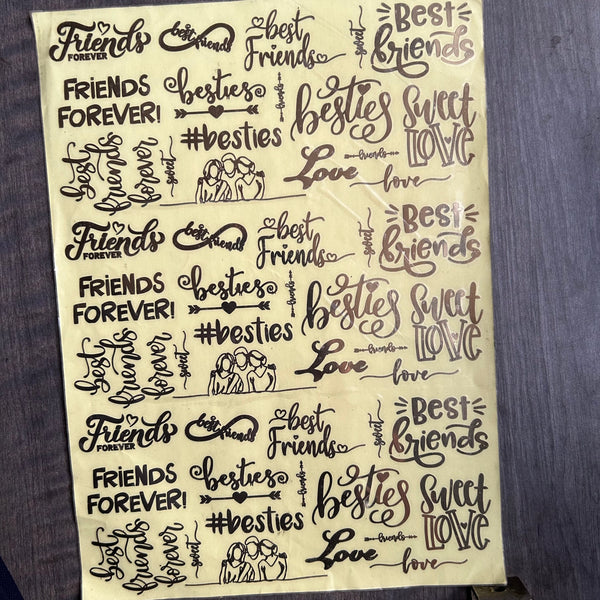 Friends
FOREVER
best friends
best
Friends
sweet
Best
friends
FRiENDS
FOREVER!
besties
friends
besties
Sweet
LOVE
best
friends
forever
sweet
#besties
Love
friends
love
Friends
FOREVER
best friends
best
Friends
sweet
Best
friends
FRiENDS
FOREVER!
besties
friends
besties
Sweet
LOVE
best
friends
forever
sweet
#besties
Love
friends
love
Friends
FOREVER
best friends
best
Friends
sweet
Best
friends
FRiENDS
FOREVER!
besties
friends
besties
Sweet
LOVE
best
friends
forever
sweet
#besties
Love
friends
love